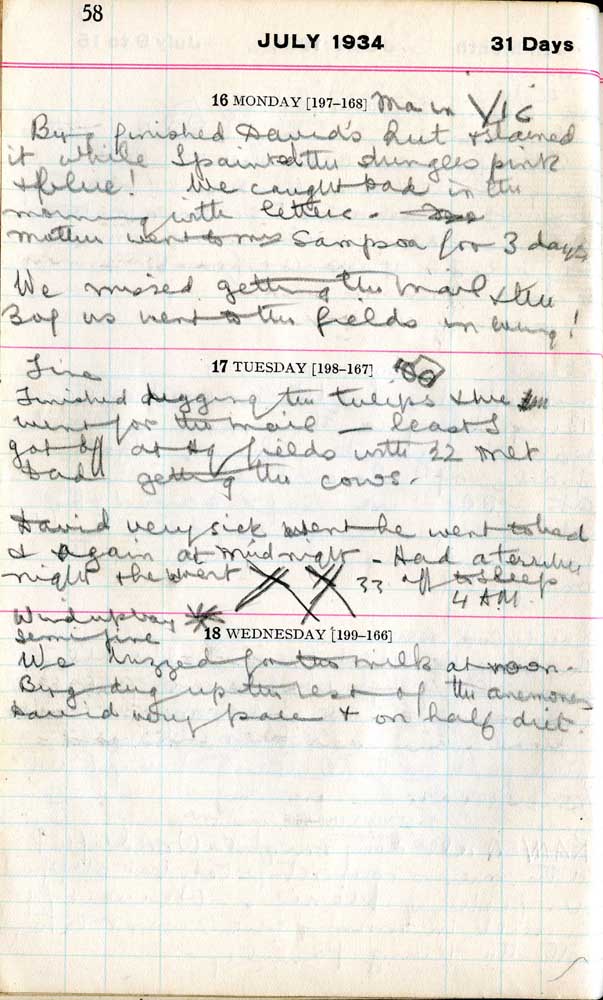 58
JULY 1934 31 Days
16 MONDAY [197–168] Ma in VIC
Byng finished David's hut & stained
it while I painted the shingles pink
& blue! We caught Dad in the
morning with letters.
Mother went to Mrs Sampson for 3 days
We missed getting the mail & the
Boy us went to the fields in evening!
Fine
17 TUESDAY [198–167]
Finished digging the tulips & we
went for the mail — least I
got off at Hq fields with 22 met
Dad getting the cows.
David very sick when he went to bed
& again at midnight – Had a terrible
night & he went XX 33 off to sleep
4 AM.
Wind up bay
semi fine
18 WEDNESDAY [199–166]
We buzzed for the milk at noon –
Byng dug up the rest of the anemones
David very pale & on half diet.